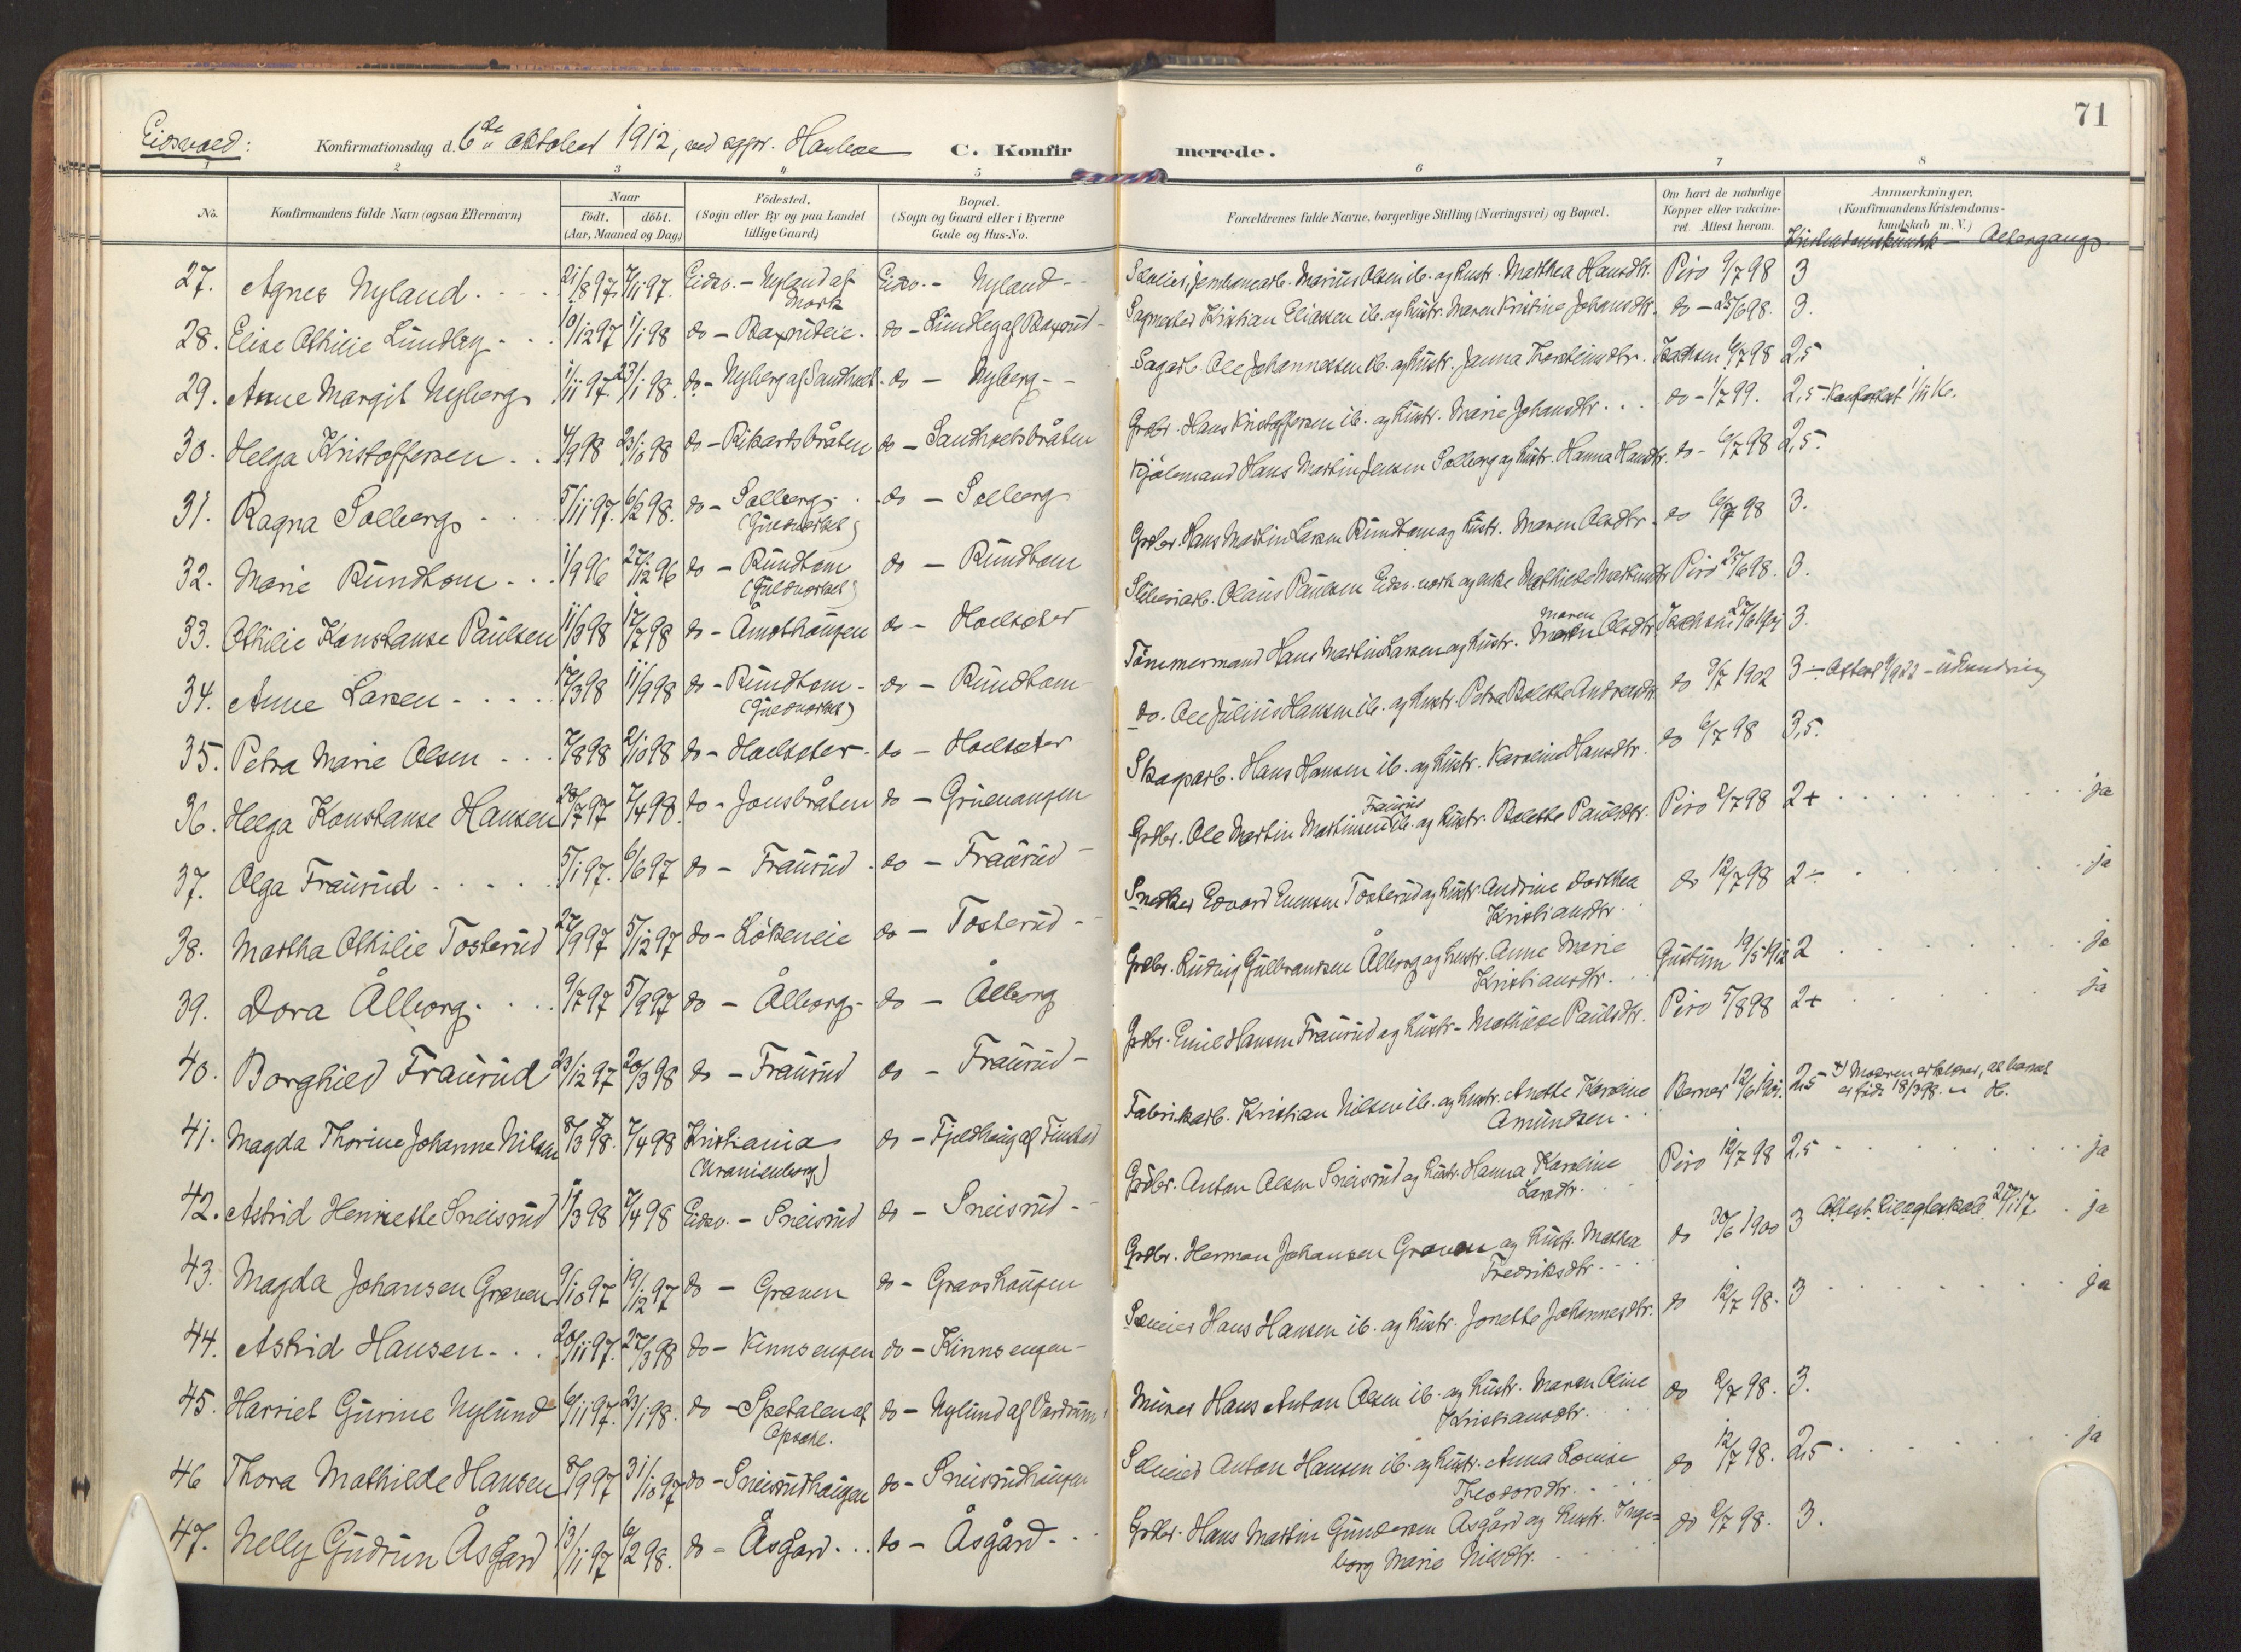 71
Eidsvold: Konfirmationsdag d. 6te oktober 1912, ved sggpr. C. Konfirmerede.
1 2 3 4 5 6 7 8
No. Konfirmandens fulde Navn (ogsaa Efternavn) Naar født. døbt. (Aar, Maaned og Dag) Fødested. (Sogn eller By og paa Landet tillige Gaard) Bopæl. (Sogn og Gaard eller i Byerne Gade og Hus-No. Forældrenes fulde Navne, borgerlige Stilling (Næringsvei) og Bopæl. Om havt de naturlige Kopper eller vakcineret. Attest herom. Anmærkninger, (Konfirmandens Kristendomskundskab m. V.)
Kristendomskundsk - Altergang
27. Agnes Nyland 21/8 97 7/11 97. Eidsv. - Nyland af Eidsv. - Nyland Marius Olsen ib. og hustr. Marthea Hansdtr. Piro 9/7 98 3
28. Elise Othilie Lundby 10/12 97 1/1 98 do - do - Sagmester Kristian Eliassen ib. og hustr. Maren Kristine Johansdtr. do - 25/6 98. 3.
29. Anne Margit Nyberg 1/11 97. 23/1 98. do - Nyberg af Sandholt do - Nyberg Sagarb. Ole Johannessen ib. og hustr. Janna Thorsteinsdtr. Isachsen 6/7 98 2,5
30. Helga Kristoffersen 4/9 98 23/10 98 do - Rikartsbråten do - Sandholtsbråten Grdbr. Hans Kristoffersen ib. og hustr. Marie Johansdtr. do - 1/7 99. 2,5
31. Ragna Solberg 5/11 97. 6/2 98. do - Solberg (Guldverket) do - Solberg Kjølemand Hans Martin Jensen Solberg og hustr. Hanna Hansdtr. do - 6/7 98 2,5.
32. Marie Rundtom 1/9 96 27/12 96 do - Rundtom (Guldverket) do - Rundtom Grdbr. Hans Martin Larsen Rundtom og hustr. Maren Olsdtr. do 6/7 98 3.
33. Othilie Konstanse Paulsen 11/3 98 17/7 98 do - Åmothaugen do - Holtseter Sliberiarb. Olaus Paulsen Eidsv. verk og enke Mathilde Martinsdtr. Piro 25/6 98. 3.
34. Anne Larsen 17/3 98 11/9 98 do - Rundtom (Guldverket) do - Rundtom Tømmermand Hans Martin Larsen og hustr. Maren Olsdtr. 3.
35. Petra Marie Olsen 7/8 98 2/10 98 do - Holtseter do - Holtseter do. Ole Julius Hansen ib. og hustr. Petra Bolette Andreasdtr. do 3/7 1902 3 - Attest 9/9 22 - utvandring
36. Helga Konstanse Hansen 28/7 97 7/4 98. do - Jonsbråten do - Skogarb. Hans Hansen ib. og hustr. Karoline Hansdtr. do 6/7 98 3,5.
37. Olga Fraurud 5/1 97. 6/6 97 do - Fraurud do - Fraurud Grdbr. Ole Martin Martinsen Fraurud ib. og hustr. Bolette Paulsdtr. Piro 2/7 98 2+ ja
38. Martha Othilie Tosterud 27/9 97 5/12 97 do - Løkeneie do - Tosterud Snedker Edvard Evensen Tosterud og hustr. Andrine Dorthea Kristiansdtr. do 12/7 98 2÷ ja
39. Dora Ålborg 9/7 97 5/9 97 do - Ålborg do - Ålborg Grdbr. Ludvig Gulbrandsen Ålborg og hustr. Anne Marie Kristiansdtr. 19/5 1912 2 ja
40. Borghild Fraurud 23/12 97 20/3 98 do - Fraurud do - Fraurud Grdbr. Emil Hansen Fraurud og hustr. Mathilde Paulsdtr. Piro 5/8 98 2+ ja
41. Magda Thorine Johanne Nilsen 8/3 98. 7/4 98 Kristiania (Uranienborg) do - Fjeldhaug af Finstad Fabrikarb. Kristian Nilsen ib. og hustr. Anette Karoline Amundsen Berner 2,5 x) Moderen erklærer, at barnet er født 18/3 98. H.
42. Astrid Henriette Sneisrud 17/3 98 7/4 98 Eidsv. - Sneisrud do - Sneisrud Grdbr. Anton Olsen Sneisrud og hustr. Hanna Karoline Larsdtr. Piro 12/7 98 2,5 ja
43. Magda Johansen Graven 9/10 97 19/12 97 do - Graven do - Gravshaugen Grdbr. Herman Johansen Graven og hustr. Mathea Fredriksdtr. do 30/6 1900 3 Attest 27/1 17. ja
44. Astrid Hansen 20/11 97. 27/3 98 do - Kinnsengen do - Kinnsengen Hans Hansen ib. og hustr. Jonette Johannesdtr. do 12/7 98. 3 ja
45. Harriet Gurine Nylund 6/11 97. 23/1 98. do - Spetalen af do - Nylund af Murer Hans Anton Olsen ib. og hustr. Maren Oline Kristiansdtr. do 2/7 98. 3.
46 Thora Mathilde Hansen 8/9 97 31/10 97 do - Sneisrudhaugen do - Sneisrudhaugen Anton Hansen ib. og hustr. Anna Lovise Theodorsdtr. do 12/7 98. 2,5 ja
47. Nelly Gudrun Åsgård 13/11 97 6/2 98. do - Åsgård do - Åsgård Grdbr. Hans Martin Gundersen Åsgård og hustr. Ingeborg Marie Nilsdtr. do 2/7 98. 3.